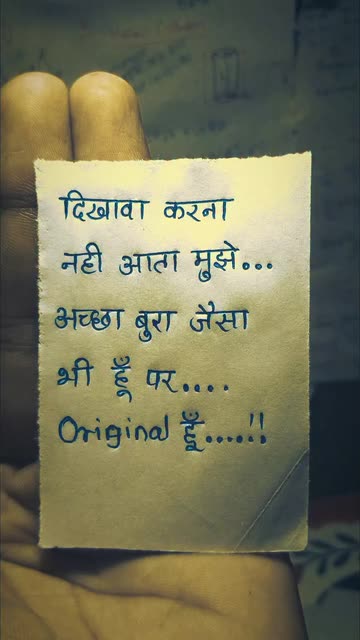 दिखावा करना
नही आता मुझे...
अच्छा बुरा जैसा
भी हूँ पर....
Original हूँ.....!!